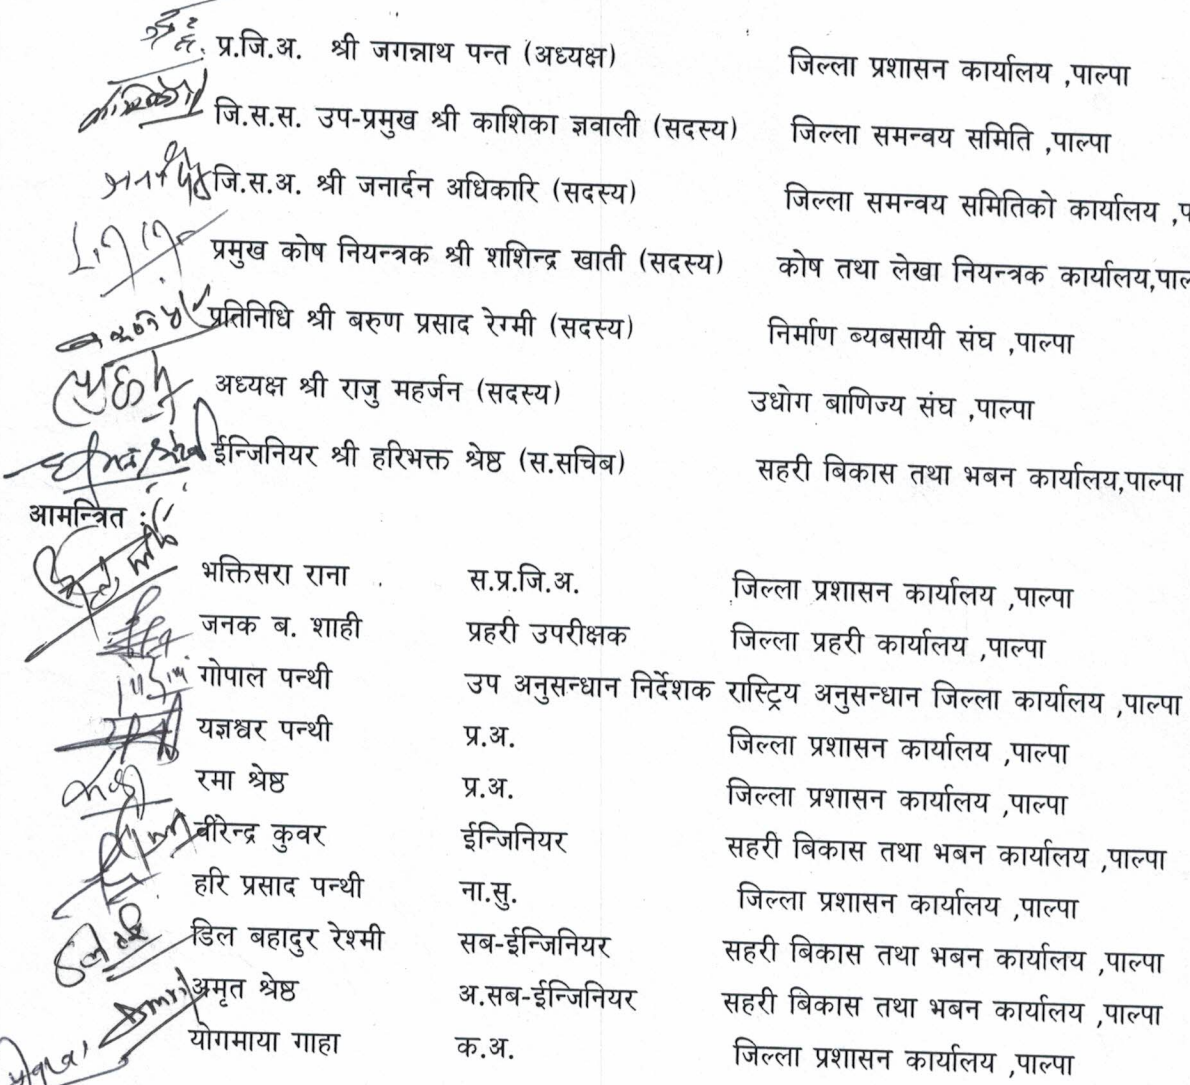 प्र.जि.अ. श्री जगन्नाथ पन्त (अध्यक्ष) जिल्ला प्रशासन कार्यालय ,पाल्पा
जि.स.स. उप-प्रमुख श्री काशिका ज्ञवाली (सदस्य) जिल्ला समन्वय समिति ,पाल्पा
जि.स.अ. श्री जनार्दन अधिकारि (सदस्य) जिल्ला समन्वय समितिको कार्यालय ,प
प्रमुख कोष नियन्त्रक श्री शशिन्द्र खाती (सदस्य) कोष तथा लेखा नियन्त्रक कार्यालय,पाल
प्रतिनिधि श्री बरुण प्रसाद रेग्मी (सदस्य) निर्माण ब्यबसायी संघ ,पाल्पा
अध्यक्ष श्री राजु महर्जन (सदस्य) उधोग बाणिज्य संघ ,पाल्पा
ईन्जिनियर श्री हरिभक्त श्रेष्ठ (स.सचिब) सहरी बिकास तथा भबन कार्यालय,पाल्पा
आमन्त्रित :
भक्तिसरा राना स.प्र.जि.अ. जिल्ला प्रशासन कार्यालय ,पाल्पा
जनक ब. शाही प्रहरी उपरीक्षक जिल्ला प्रहरी कार्यालय ,पाल्पा
गोपाल पन्थी उप अनुसन्धान निर्देशक रास्ट्रिय अनुसन्धान जिल्ला कार्यालय ,पाल्पा
यज्ञश्वर पन्थी प्र.अ. जिल्ला प्रशासन कार्यालय ,पाल्पा
रमा श्रेष्ठ प्र.अ. जिल्ला प्रशासन कार्यालय ,पाल्पा
बीरेन्द्र कुवर ईन्जिनियर सहरी बिकास तथा भबन कार्यालय ,पाल्पा
हरि प्रसाद पन्थी ना.सु. जिल्ला प्रशासन कार्यालय ,पाल्पा
डिल बहादुर रेश्मी सब-ईन्जिनियर सहरी बिकास तथा भबन कार्यालय ,पाल्पा
अमृत श्रेष्ठ अ.सब-ईन्जिनियर सहरी बिकास तथा भबन कार्यालय ,पाल्पा
योगमाया गाहा क.अ. जिल्ला प्रशासन कार्यालय ,पाल्पा